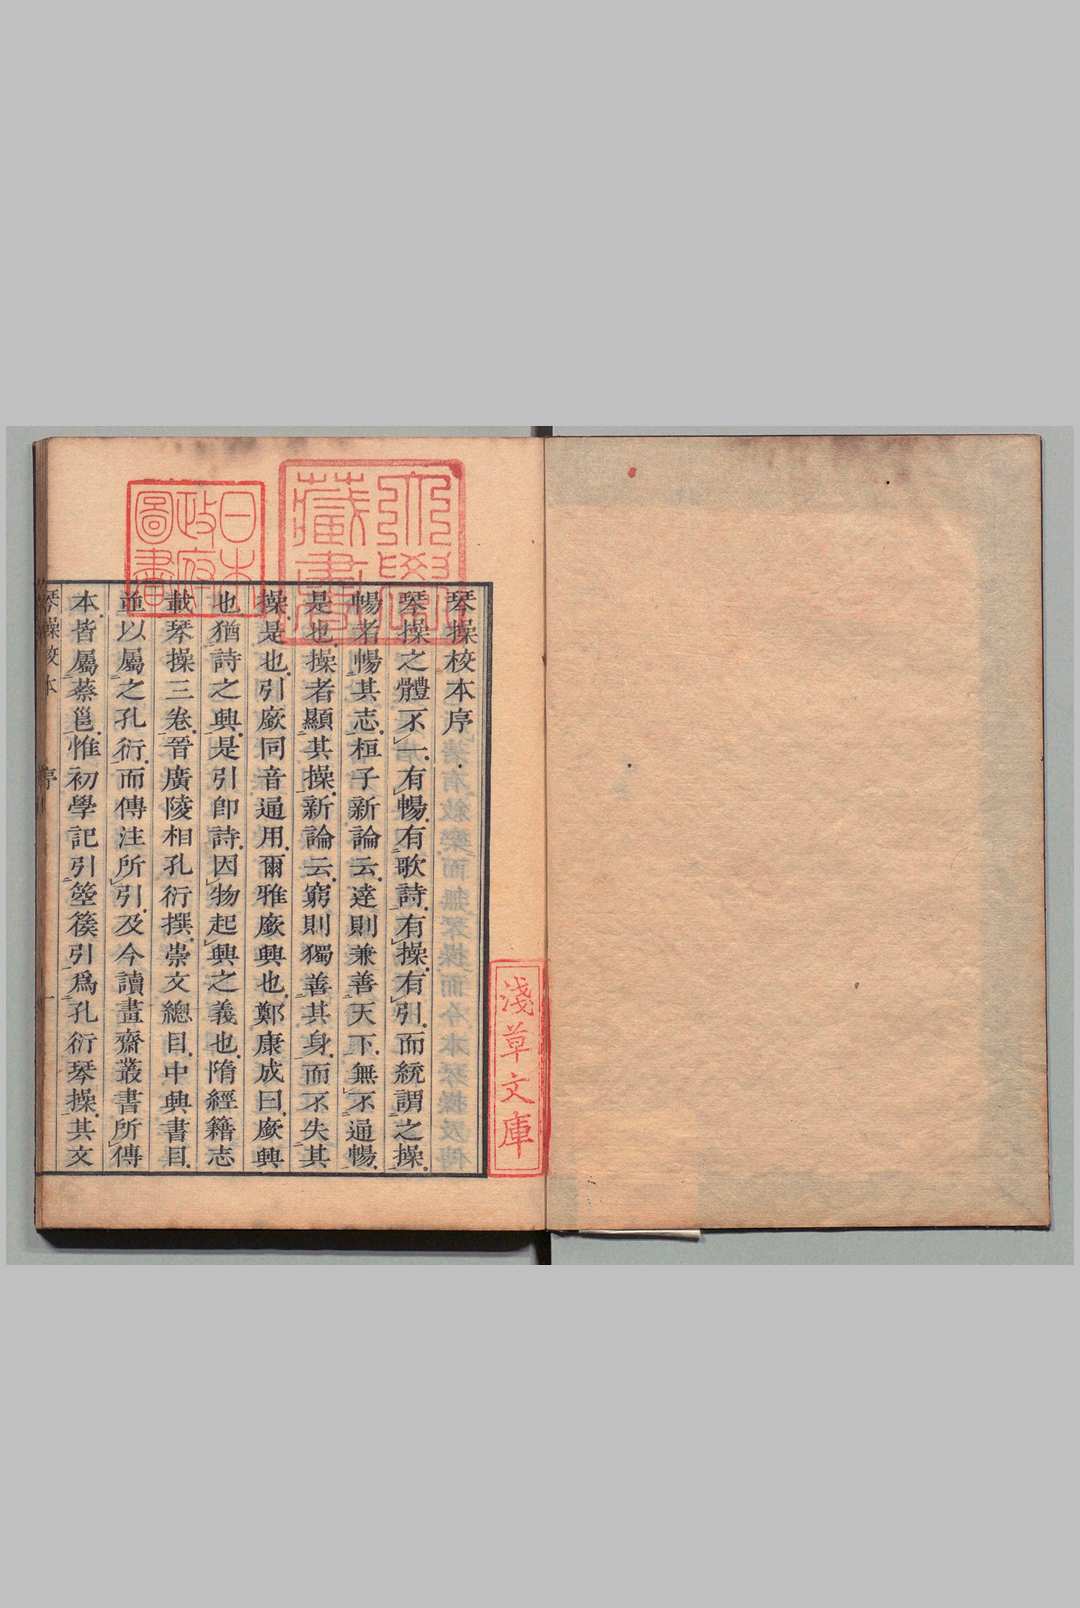 琴操校本序
琴操之體不一有暢有歌詩有操有引而統謂之操
暢者暢其志桓子新論云達則兼善天下無不通暢
是也操者顯其操新論云窮則獨善其身而不失其
操是也引廞同音通用爾雅廞興也鄭康成曰廞興
也猶詩之興是引卽詩因物起興之義也隋經籍志
載琴操三卷晉廣陵相孔衍撰崇文總目中興書目
並以屬之孔衍而傳注所引及今讀畫齋叢書所傳
本皆屬蔡邕惟初學記引箜篌引爲孔衍琴操其文
琴操校本 序 一
大學藏書
日本政府圖書
淺草文庫